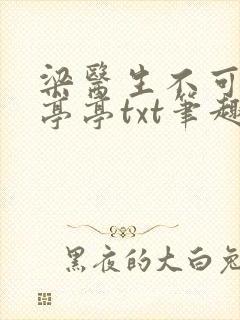 梁醫生不可
亭亭txt筆趣
黑夜的大白兔